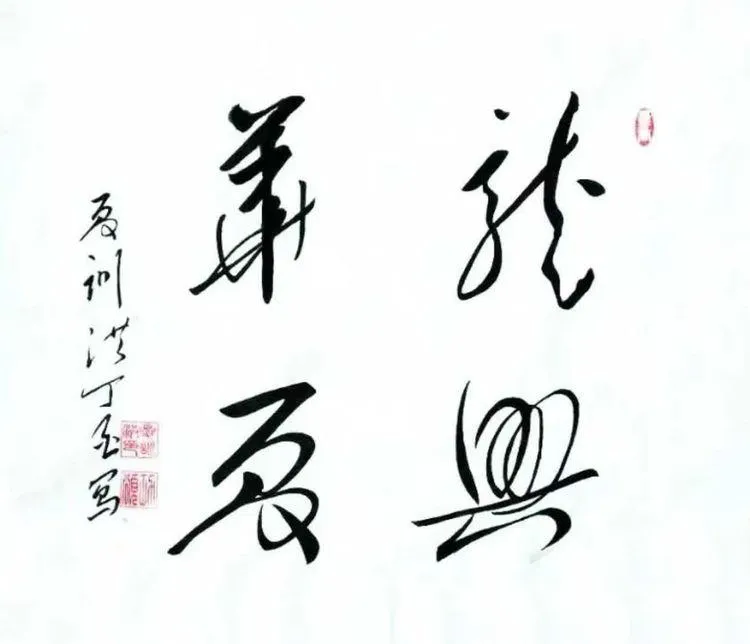 龍興
華夏
夏訓洪丁酉寫